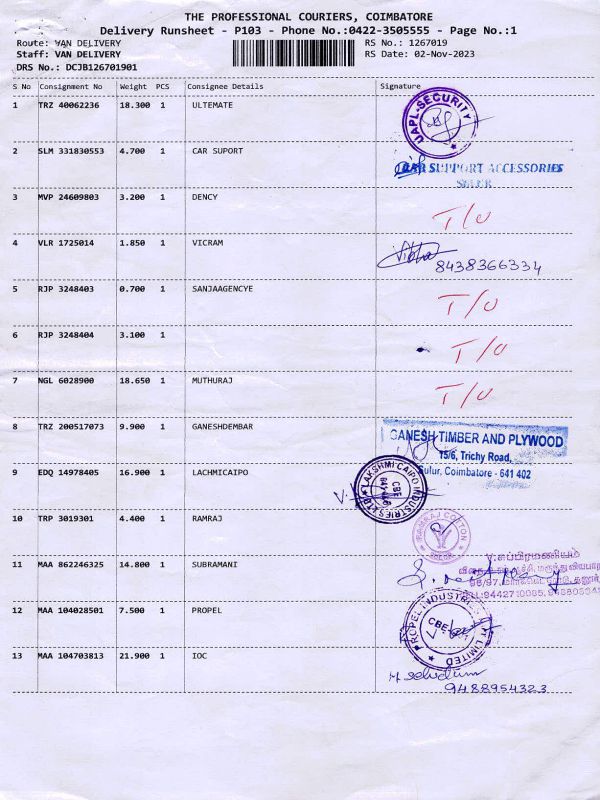 THE PROFESSIONAL COURIERS, COIMBATORE
Delivery Runsheet - P103 - Phone No.:0422-3505555 - Page No.:1
Route: VAN DELIVERY RS No.: 1267019
Staff: VAN DELIVERY RS Date: 02-Nov-2023
DRS No.: DCJB126701901
S No Consignment No Weight PCS Consignee Details Signature
1 TRZ 40062236 18.300 1 ULTEMATE
UAPL-SECURITY
2 SLM 331830553 4.700 1 CAR SUPORT
CAR SUPPORT ACCESSORIES
SULUR
3 MVP 24609803 3.200 1 DENCY T/O
4 VLR 1725014 1.850 1 VICRAM
8438366334
5 RJP 3248403 0.700 1 SANJAAGENCYE T/O
6 RJP 3248404 3.100 1 T/O
7 NGL 6028900 18.650 1 MUTHURAJ T/O
8 TRZ 200517073 9.900 1 GANESHDEMBAR
GANESH TIMBER AND PLYWOOD
15/6, Trichy Road,
Sulur, Coimbatore - 641 402
9 EDQ 14978405 16.900 1 LACHMICAIPO
LAKSHMI CAIPO INDUSTRIES
CBE
10 TRP 3019301 4.400 1 RAMRAJ
RAMRAJ COTTON
11 MAA 862246325 14.800 1 SUBRAMANI
V.சுப்பிரமணியம்
12 MAA 104028501 7.500 1 PROPEL
PROPEL INDUSTRIES PVT LIMITED
CBE
13 MAA 104703813 21.900 1 IOC
9488954323